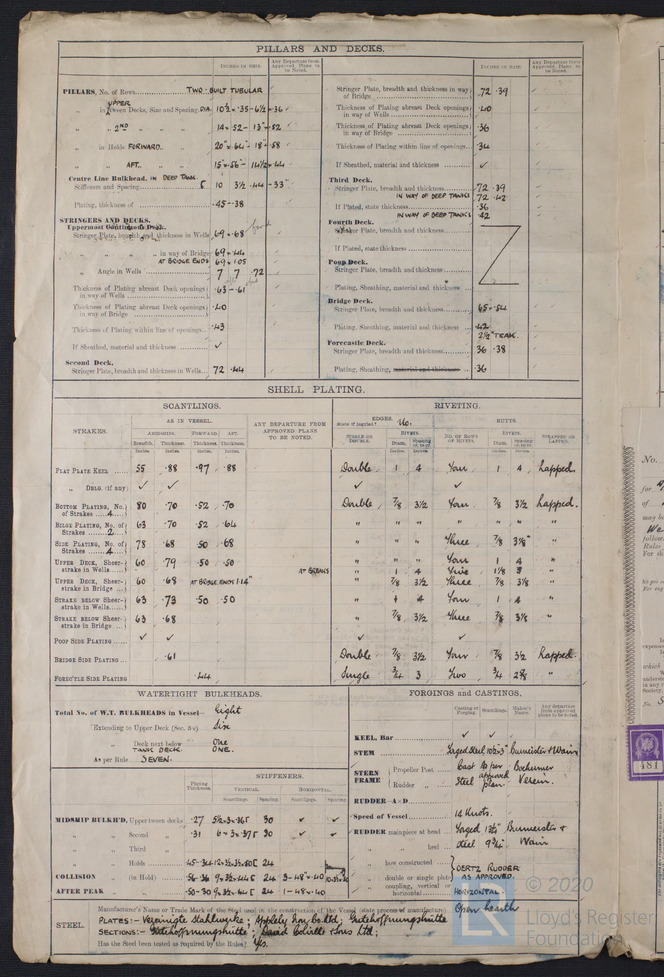 PILLARS AND DECKS.
INCHES IN SHIP.
Any Departure from Approved Plans to be Noted.
PILLARS, No. of Rows TWO - BUILT TUBULAR
UPPER
in Tween Decks, Size and Spacing DIA 10½ × .35 - 6½ × .36
" 2ND " " 14 × .52 - 13 × .52
" in Holds FORWARD 20" × .64 - 18 × .58
" " AFT. 15 × .56 - 14½ × .44
Centre Line Bulkhead. IN DEEP TANK.
Stiffeners and Spacing 10 3½ .44 - 33"
Plating, thickness of .45 - .38
STRINGERS AND DECKS.
Uppermost Continuous Deck.
Stringer Plate, breadth and thickness in Wells 69 × .68
" " in way of Bridge 69 × .44
AT BRIDGE ENDS 69 × 1.05
" Angle in Wells 7 7 .72
Thickness of Plating abreast Deck openings in way of Wells .63 - .61
Thickness of Plating abreast Deck openings in way of Bridge .40
Thickness of Plating within line of openings .43
If Sheathed, material and thickness ✓
Second Deck.
Stringer Plate, breadth and thickness in Wells 72 .44
INCHES IN SHIP.
Any Departure from Approved Plans to be Noted.
Stringer Plate, breadth and thickness in way of Bridge 72 .39
Thickness of Plating abreast Deck openings in way of Wells .40
Thickness of Plating abreast Deck openings in way of Bridge .36
Thickness of Plating within line of openings .34
If Sheathed, material and thickness ✓
Third Deck.
Stringer Plate, breadth and thickness 72 .39
IN WAY OF DEEP TANKS 72 .42
If Plated, state thickness .36
IN WAY OF DEEP TANKS .42
Fourth Deck.
Stringer Plate, breadth and thickness
If Plated, state thickness
Poop Deck.
Stringer Plate, breadth and thickness
Plating, Sheathing, material and thickness
Bridge Deck.
Stringer Plate, breadth and thickness 65 × .54
Plating, Sheathing, material and thickness .42
2½" TEAK.
Forecastle Deck.
Stringer Plate, breadth and thickness 36 .38
Plating, Sheathing, material and thickness .36
SHELL PLATING.
SCANTLINGS.
RIVETING.
STRAKES.
AS IN VESSEL.
AMIDSHIPS. FORWARD. AFT.
Breadth. Thickness. Thickness. Thickness.
Inches. Inches. Inches. Inches.
ANY DEPARTURE FROM APPROVED PLANS TO BE NOTED.
EDGES.
State if joggled? No.
SINGLE OR DOUBLE.
RIVETS.
Diam. Spacing cr. to cr.
BUTTS.
NO. OF ROWS OF RIVETS.
RIVETS.
Diam. Spacing cr. to cr.
STRAPPED OR LAPPED.
FLAT PLATE KEEL 55 .88 .97 .88 Double 1 4 Four 1 4 Lapped.
" DBLG. (if any) ✓ ✓ ✓ ✓
BOTTOM PLATING, No. of Strakes 4 80 .70 .52 .70 Double 7/8 3½ Four 7/8 3½ Lapped.
BILGE PLATING, No. of Strakes 2 63 .70 .52 .64 " " " " " " "
SIDE PLATING, No. of Strakes 4 78 .68 .50 .68 " " " Three 7/8 3⅛" "
UPPER DECK, Sheerstrake in Wells 60 .79 .50 .50 " " " Four 1 4 "
AT BREAKS " 1 4 Five 1⅛ "
UPPER DECK, Sheerstrake in Bridge 60 .68 AT BRIDGE ENDS 1.14" " 7/8 3½ Three 7/8 3⅛ "
STRAKE BELOW Sheerstrake in Wells 63 .73 .50 .50 " 1 4 Four 1 4 "
STRAKE BELOW Sheerstrake in Bridge 63 .68 " 7/8 3½ Three 7/8 3⅛ "
POOP SIDE PLATING ✓ ✓ ✓ ✓
BRIDGE SIDE PLATING .61 Double 7/8 3½ Four 7/8 3½ Lapped.
FORE'C'TLE SIDE PLATING .44 Single ¾ 3 Two ¾ 2⅝ "
WATERTIGHT BULKHEADS.
Total No. of W.T. BULKHEADS in Vessel— Eight
" Extending to Upper Deck (Sec. 3 c) Six
" Deck next below One
TANK DECK. ONE.
As per Rule SEVEN.
Plating Thickness.
STIFFENERS.
VERTICAL. HORIZONTAL.
Scantlings. Spacing. Scantlings. Spacing.
MIDSHIP BULKH'D, Upper tween decks .27 30 ✓ ✓
" " Second " .31 6 × 3 × .375 30 ✓ ✓
" " Third "
" " Holds .45-.36 24
COLLISION " (in Hold) 24 3-48" × .40
AFTER PEAK " .50-.30 24 1-48 × .40
FORGINGS and CASTINGS.
Casting or Forging. Scantlings. Maker's Name. Any departure from approved plans to be noted.
KEEL, Bar ✓ ✓
STEM Forged Steel Burmeister & Wain
STERN FRAME Propeller Post Cast Steel as per approved plan. Bochumer Verein.
Rudder "
RUDDER—A × D
Speed of Vessel 14 Knots.
RUDDER mainpiece at head Forged Steel Burmeister & Wain
" " heel 9¾
" how constructed OERTZ RUDDER
" double or single plate AS APPROVED.
" coupling, vertical or horizontal HORIZONTAL
STEEL
Manufacturer's Name or Trade Mark of the Steel used in the construction of the Vessel (state process of manufacture) Open hearth
PLATES:- Vereinigte Stahlwerke; Appleby Iron Co Ltd; Gutehoffnungshütte
SECTIONS:- Gutehoffnungshütte; David Colville & Sons Ltd;
Has the Steel been tested as required by the Rules? Yes.
© 2020
Lloyd's Register
Foundation
No.
for
of
may be
We
follow
Rules
For th
expenses
which
Society.
481